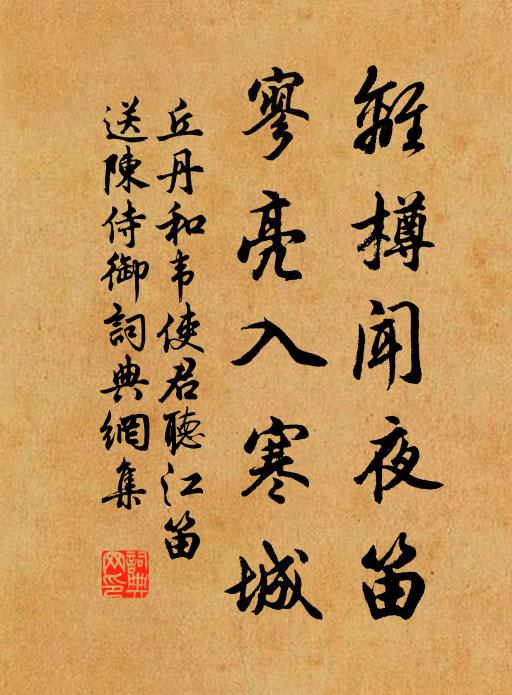 離樽聞夜笛
寥亮入寒城
丘丹和韦使君聽江笛
送陳侍御詞典網集
詞典网印